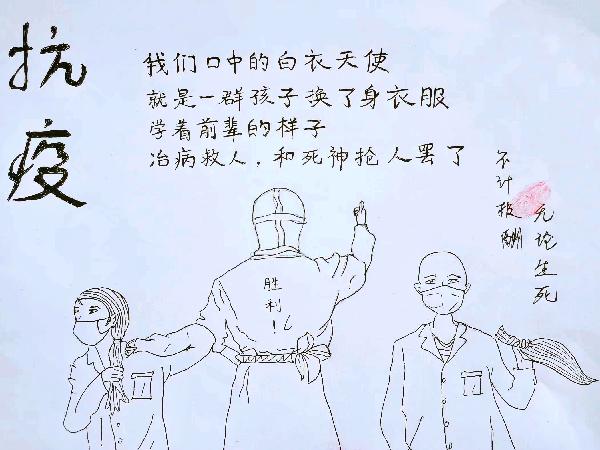 抗疫
我们口中的白衣天使
就是一群孩子换了身衣服
学着前辈的样子
治病救人，和死神抢人罢了
不计报酬
无论生死
胜利!